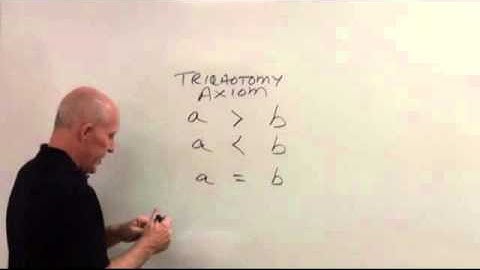 TRICHOTOMY
AXIOM
a > b
a < b
a = b